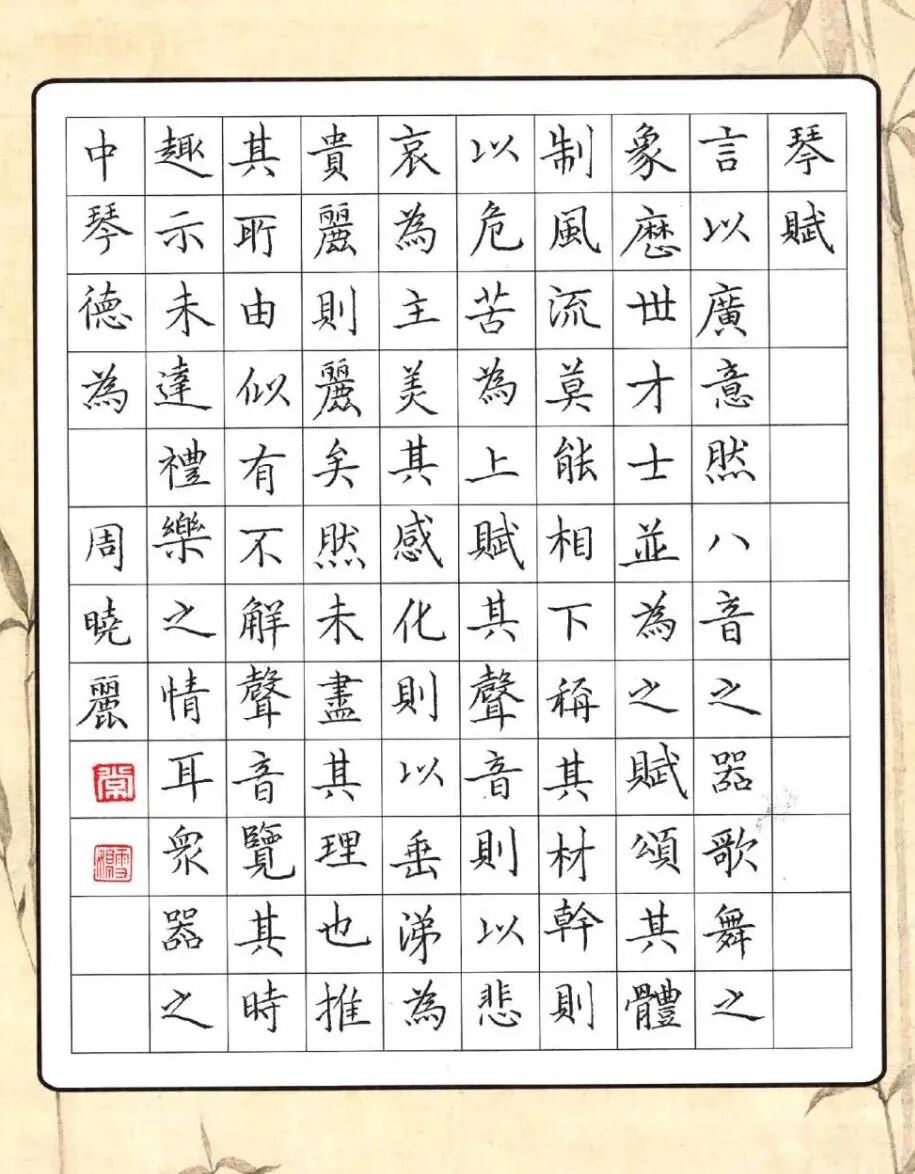 琴賦
言以廣意然八音之器歌舞之
象歷世才士並為之賦頌其體
制風流莫能相下稱其材幹則
以危苦為上賦其聲音則以悲
哀為主美其感化則以垂涕為
貴麗則麗矣然未盡其理也推
其所由似有不解聲音覽其時
趣示未達禮樂之情耳衆器之
中琴德為 周曉麗